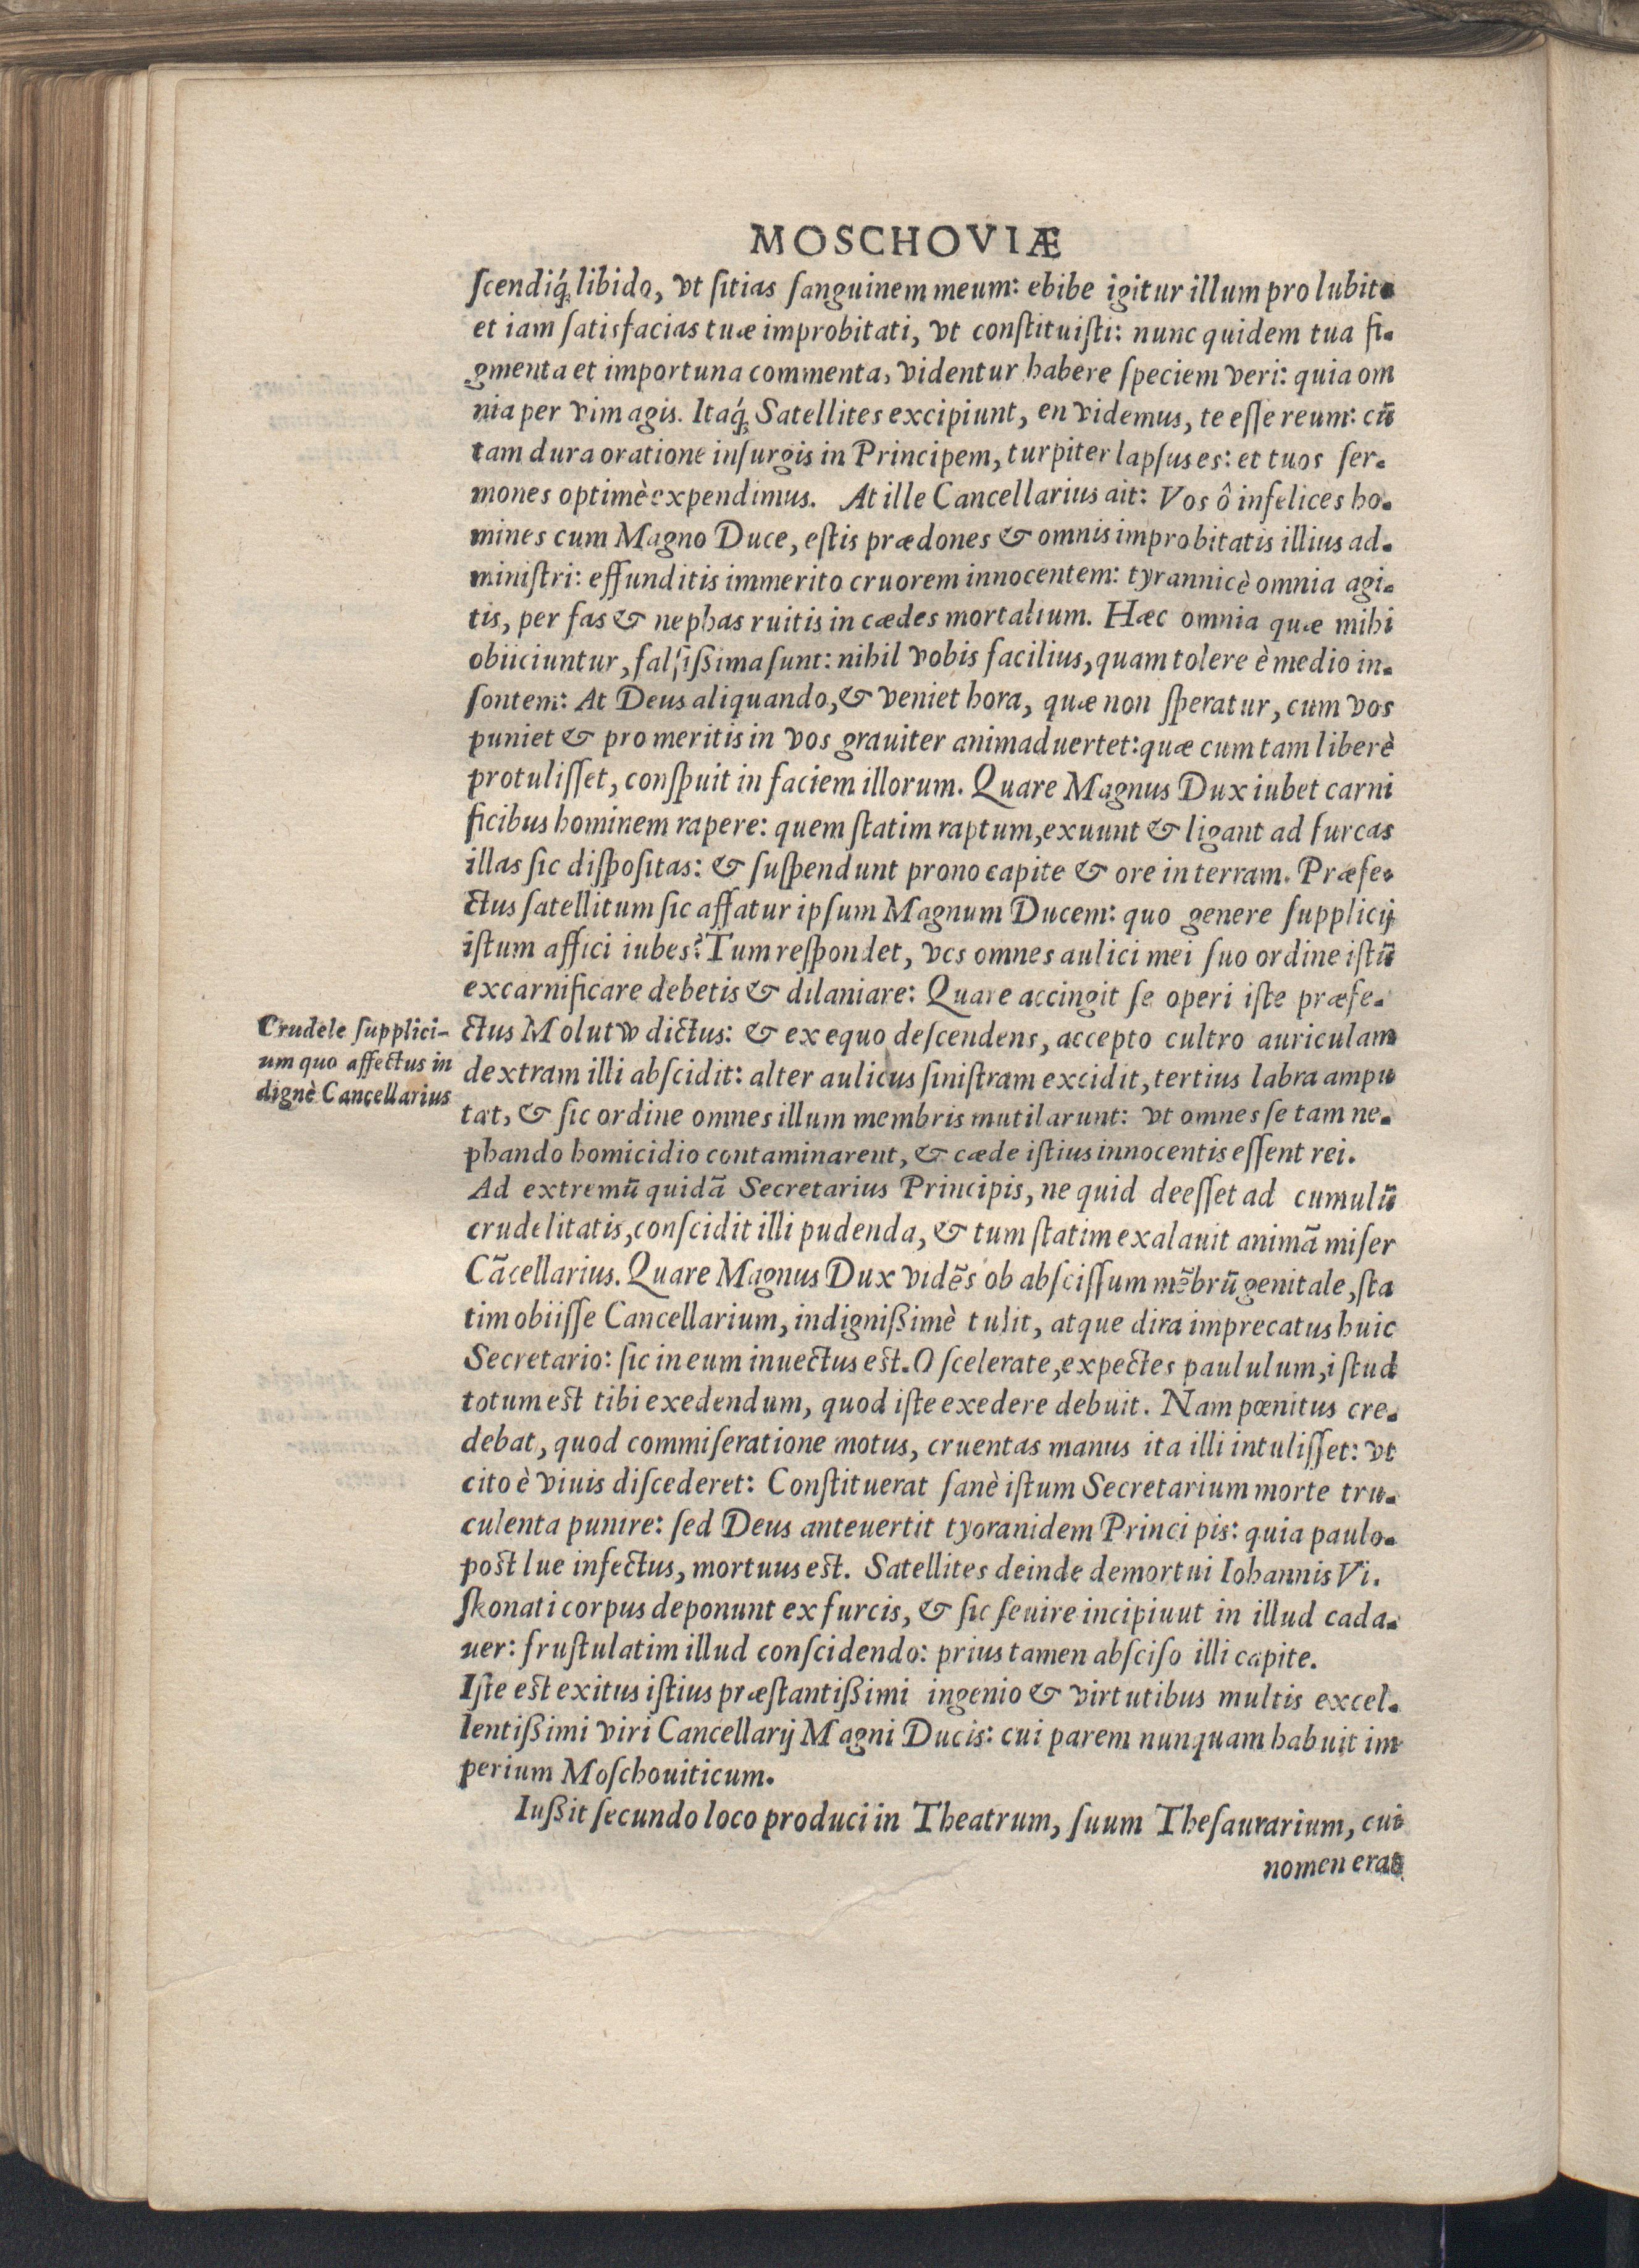 MOSCHOVIÆ
ſcendiq́ꝫ libido, vt ſitias ſanguinem meum: ebibe igitur illum pro lubito
et iam ſatisfacias tuæ improbitati, vt conſtituiſti: nunc quidem tua fi-
gmenta et importuna commenta, videntur habere ſpeciem veri: quia om
nia per vim agis. Itaq́ꝫ Satellites excipiunt, en videmus, te eſſe reum: cū
tam dura oratione inſurgis in Principem, turpiter lapſus es: et tuos ſer-
mones optimè expendimus. At ille Cancellarius ait: Vos ô infelices ho-
mines cum Magno Duce, eſtis prædones & omnis improbitatis illius ad-
miniſtri: effunditis immerito cruorem innocentem: tyrannicè omnia agi-
tis, per fas & nephas ruitis in cædes mortalium. Hæc omnia quæ mihi
obiiciuntur, falſißima ſunt: nihil vobis facilius, quam tolere è medio in-
ſontem: At Deus aliquando, & veniet hora, quæ non ſperatur, cum vos
puniet & pro meritis in vos grauiter animaduertet: quæ cum tam liberè
protuliſſet, conſpuit in faciem illorum. Quare Magnus Dux iubet carni
ficibus hominem rapere: quem ſtatim raptum, exuunt & ligant ad furcas
illas ſic diſpoſitas: & ſuſpendunt prono capite & ore in terram. Præfe-
ctus ſatellitum ſic affatur ipſum Magnum Ducem: quo genere ſupplicij
iſtum affici iubes? Tum reſpondet, vos omnes aulici mei ſuo ordine iſtū
excarnificare debetis & dilaniare: Quare accingit ſe operi iſte præfe-
Crudele ſupplici-
um quo affectus in
dignè Cancellarius
ctus Molutw dictus: & ex equo deſcendens, accepto cultro auriculam
dextram illi abſcidit: alter aulicus ſiniſtram excidit, tertius labra ampu
tat, & ſic ordine omnes illum membris mutilarunt: vt omnes ſe tam ne-
phando homicidio contaminarent, & cæde iſtius innocentis eſſent rei.
Ad extremū quidā Secretarius Principis, ne quid deeſſet ad cumulū
crudelitatis, conſcidit illi pudenda, & tum ſtatim exalauit animā miſer
Cācellarius. Quare Magnus Dux vidēs ob abſciſſum mēbrū genitale, ſta
tim obiiſſe Cancellarium, indignißimè tulit, atque dira imprecatus huic
Secretario: ſic in eum inuectus eſt. O ſcelerate, expectes paululum, iſtud
totum eſt tibi exedendum, quod iſte exedere debuit. Nam pœnitus cre-
debat, quod commiſeratione motus, cruentas manus ita illi intuliſſet: vt
cito è viuis diſcederet: Conſtituerat ſanè iſtum Secretarium morte tru-
culenta punire: ſed Deus anteuertit tyoranidem Principis: quia paulo-
poſt lue infectus, mortuus eſt. Satellites deinde demortui Iohannis Vi-
ſkonati corpus deponunt ex furcis, & ſic ſeuire incipiuut in illud cada-
uer: fruſtulatim illud conſcidendo: prius tamen abſciſo illi capite.
Iſte eſt exitus iſtius præſtantißimi ingenio & virtutibus multis excel-
lentißimi viri Cancellarij Magni Ducis: cui parem nunquam habuit im
perium Moſchouiticum.
Iußit ſecundo loco produci in Theatrum, ſuum Theſaurarium, cui
nomen erat